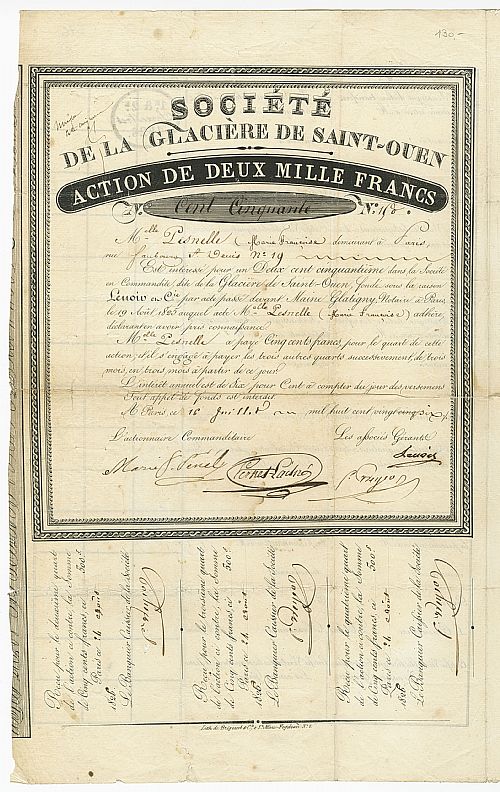 130.-
SOCIÉTÉ
DE LA GLACIÈRE DE SAINT-OUEN
ACTION DE DEUX MILLE FRANCS
N.º Cent Cinquante N.º 150.
M.elle Pesnelle (Marie Françoise) demeurant à Paris,
rue faubourg St Denis N.º 19
Est intéressé pour un Deux cent cinquantième dans la Société
en Commandite, dite de la Glacière de Saint-Ouen, fondé sous la raison
Lenoir et Cie par acte passé devant Maine Glatigny, Notaire à Paris,
le 19 Août 1825 auquel acte M.elle Pesnelle (Marie Françoise) adhère,
déclarant en avoir pris connaissance.
M.elle Pesnelle a payé Cinq cents francs, pour le quart de cette
action; et il s'engage à payer les trois autres quarts successivement, de trois
mois, en trois mois à partir de ce jour.
L'intérêt annuel est de Six pour Cent à compter du jour des versemens
Tout appel de fonds est interdit.
A Paris, ce 15 Juillet mil huit cent vingt cinq six
L'actionnaire Commanditaire Les associés Gérants
Reçu pour le deuxième quart
de l'action ci contre, la Somme
de Cinq cents francs, ci 500f
Paris ce 24 août
1826
Le Banquier Caissier de la Société
Reçu pour le troisième quart
de l'action ci contre, la Somme
de Cinq cents francs, ci 500f
Paris ce 24 août
1826
Le Banquier Caissier de la Société
Reçu pour le quatrième quart
de l'action ci contre, la Somme
de Cinq cents francs, ci 500f
Paris ce 24 août
1826
Le Banquier Caissier de la Société